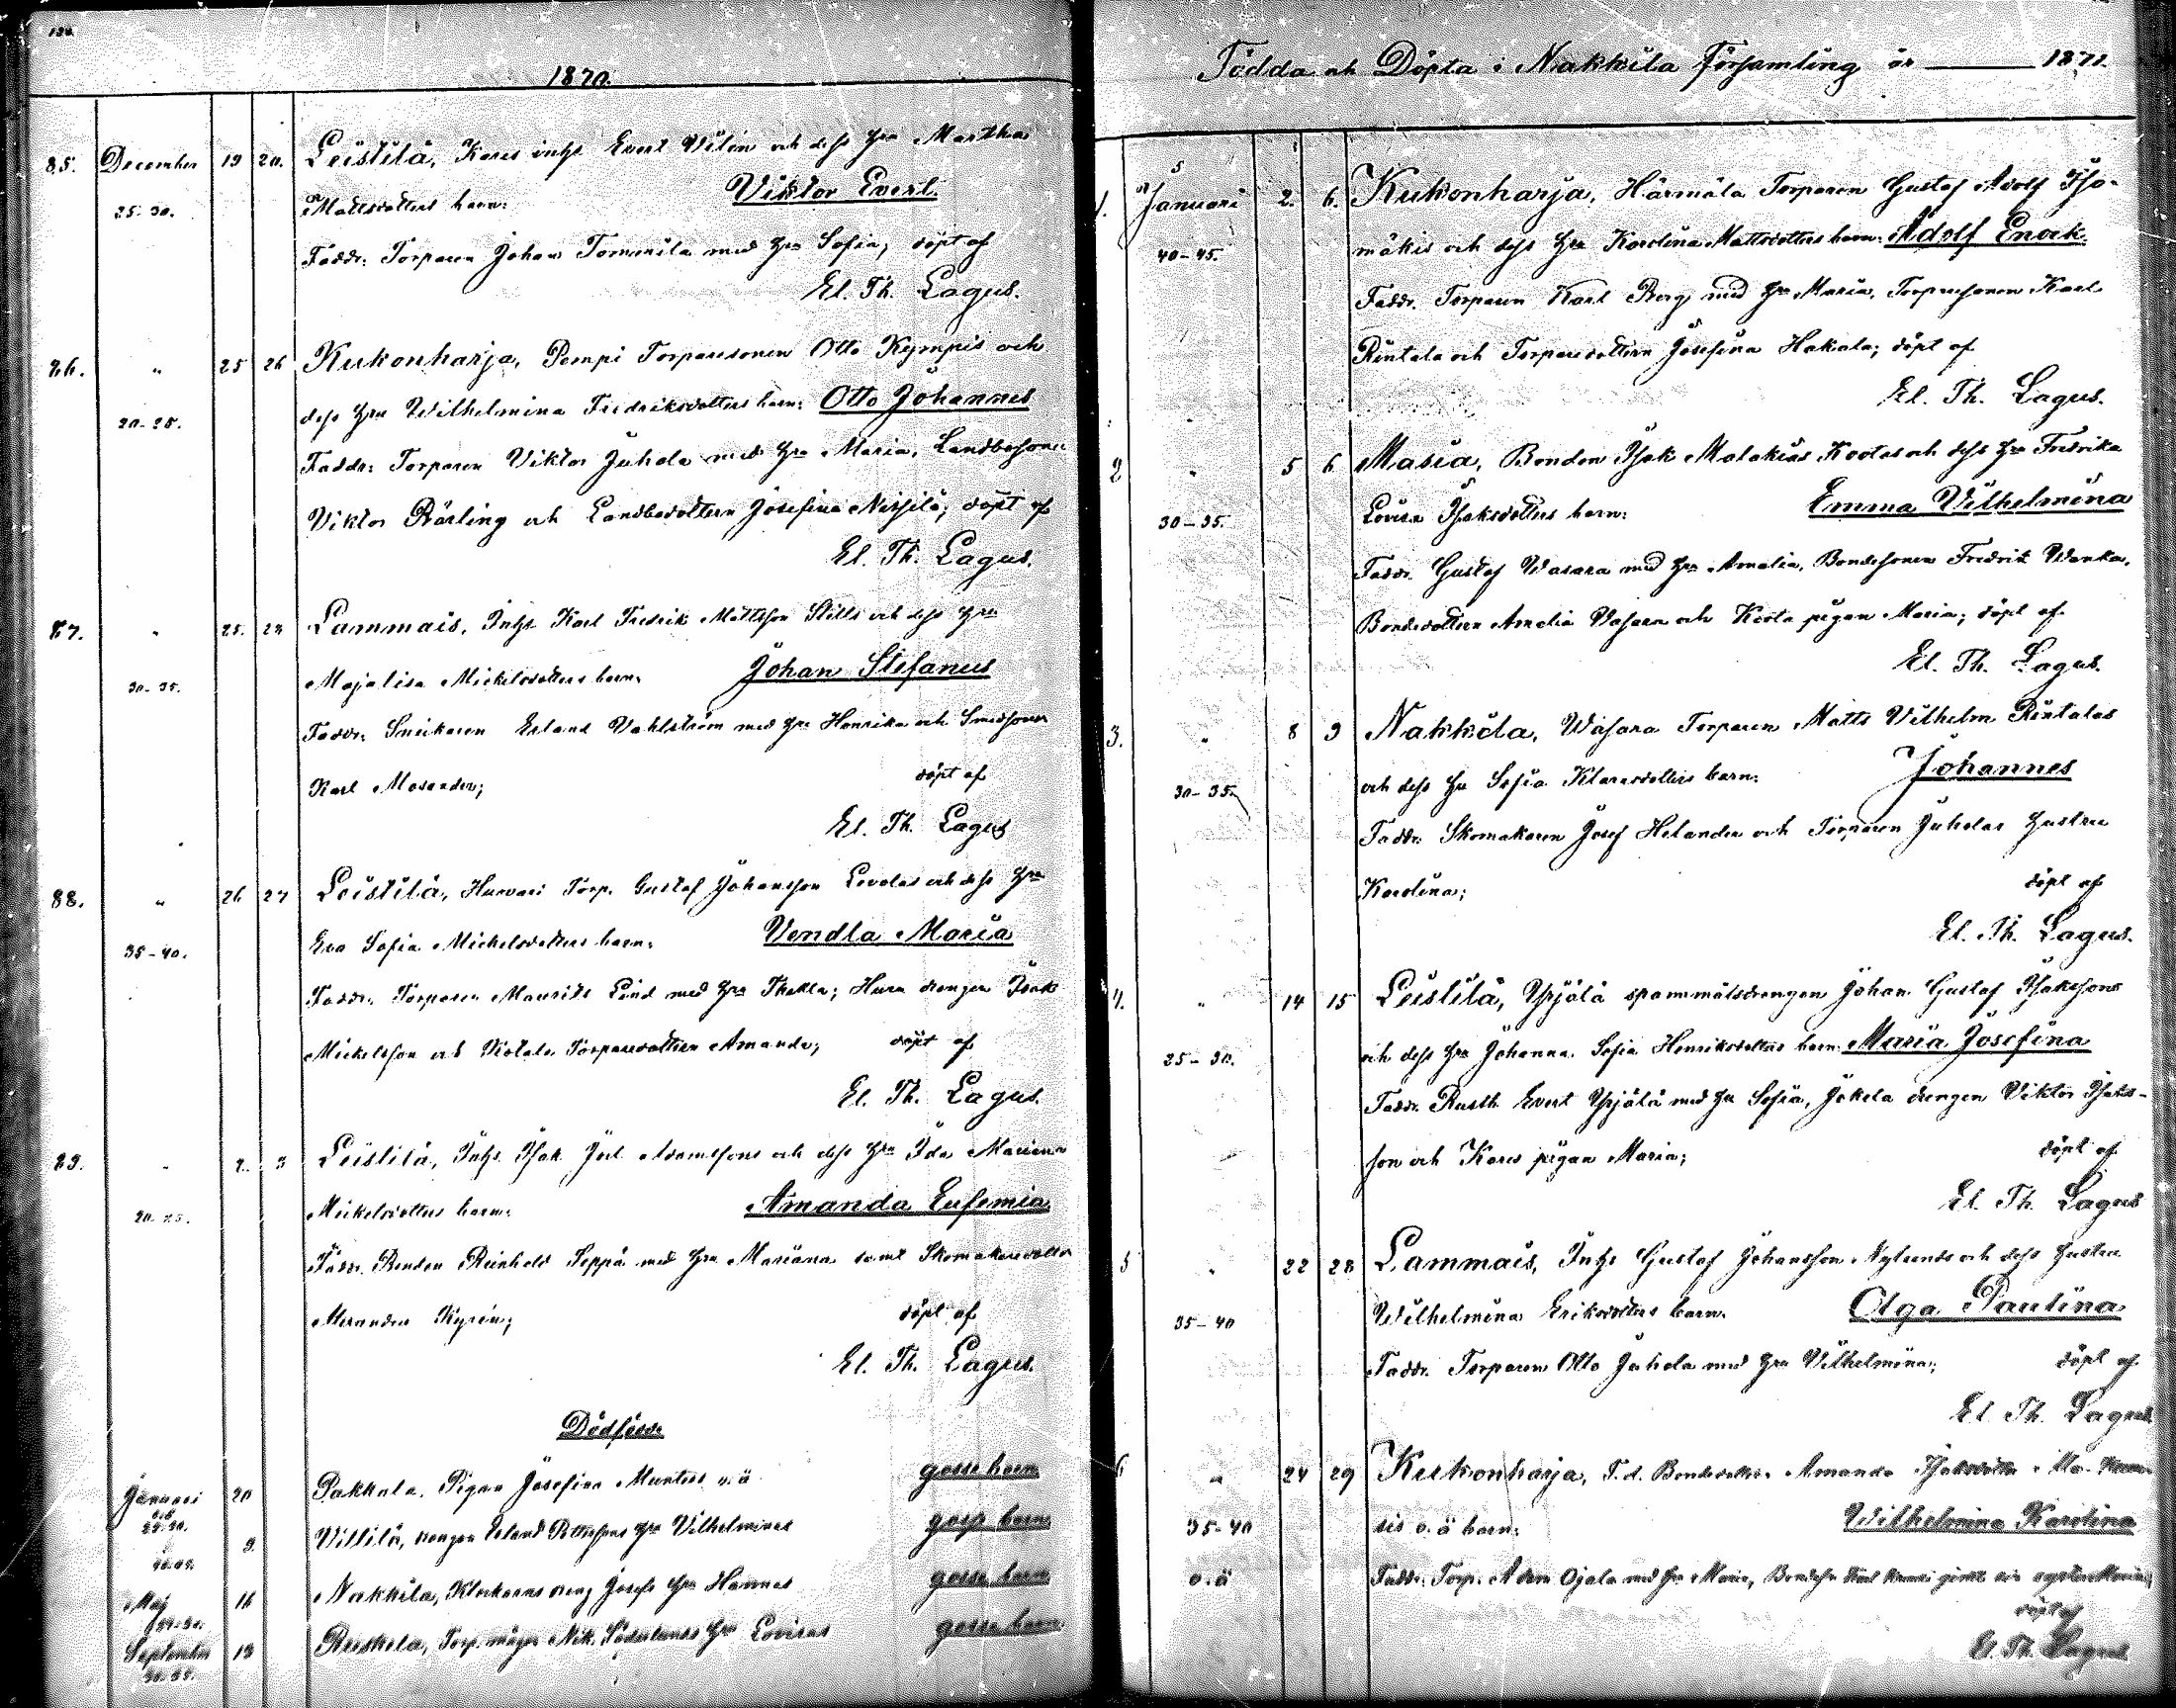 130.
1870.
85. December 19 20. Leistilä, Kares inhs Evert Vilén och dess hu Martha
25-30. Mattsdotters barn: Viktor Evert.
Faddr: Torparen Johan Tommila med hu Sofia; döpt af
El. Th. Lagus.
86. " 25 26 Kukonharja, Pempi Torparesonen Otto Kympis och
20-25. dess hu Wilhelmina Fredriksdotters barn: Otto Johannes
Faddr: Torparen Viktor Juhola med hu Maria, Landbosonen
Viktor Bärling och Landbodottern Josefina; döpt af
El. Th. Lagus.
87. " 25. 28 Lammais, Inhs Karl Fredrik Mattsson och dess hu
30-35. Majalisa Mickelsdotters barn: Johan Stefanus
Faddr: Snickaren Erland Vahlström med hu Henrika och Smedsonen
Karl Mosander; döpt af
El. Th. Lagus
88. " 26 27 Leistilä, Torp. Gustaf Johansson Levolas och dess hu
35-40. Eva Sofia Mickelsdotters barn: Vendla Maria
Faddr: Torparen Maurits Lind med hu Thekla; drengen Isak
Mickelsson och Torparedottern Amanda; döpt af
El. Th. Lagus.
89. " 2. 3 Leistilä, Inhs Isak Joel Adamssons och dess hu Ida Mariana
20-25. Mickelsdotters barn: Amanda Eufemia
Faddr: Bonden Reinhold Seppä med hu Mariana samt Skomakaredottern
Alexandra Kyrén; döpt af
El. Th. Lagus.
Dödfödde
Januari 20 Pakkala, Pigan Josefina o.ä gosse barn
25-30.
9. Villilä, drengen Erland hu Vilhelminas
40-45.
Maj 16 Nakkila, Klockarns dreng Josefs hu Hannas gosse barn
September 13 Ruskela, Torp. Söderlunds hu Lovisas gosse barn
Födda och Döpta i Nakkila Församling år 1871.
1. Januari 2. 6. Kukonharja, Härmälä Torparen Gustaf Adolf Iso-
40-45. mäkis och dess hu Karolina Mattsdotters barn: Adolf Enock.
Faddr. Torparen Karl Berg med hu Maria, Torparesonen Karl
Rintala och Torparedottern Josefina Hakala; döpt af
El. Th. Lagus.
2 " 5 6 Masia, Bonden Isak Malakias Kootas och dess hu Fredrika
30-35. Lovisa Isaksdotters barn: Emma Vilhelmina
Faddr. Gustaf Wasara med hu Amalia, Bondesonen Fredrik Wanka,
Bondedottern Amalia Vasara och Koota pigan Maria; döpt af
El. Th. Lagus.
3. " 8 9 Nakkila, Wasara Torparen Matts Vilhelm Rintalas
30-35. och dess hu Sofia Klarasdotters barn: Johannes
Faddr. Skomakaren Josef Helander och Torparen Juholas hustru
Karolina; döpt af
El. Th. Lagus.
4. " 14 15 Leistilä, Yrjälä spannmålsdrengen Johan Gustaf Isakssons
25-30. och dess hu Johanna Sofia Henriksdotters barn: Maria Josefina
Faddr. Rusth. Evert Yrjälä med hu Sofia, Jokela drengen Viktor Isaks-
son och Kares pigan Maria; döpt af
El. Th. Lagus
5 " 22 28 Lammais, Inhs Gustaf Johansson Nylunds och dess hustru
35-40 Wilhelmina Eriksdotters barn: Olga Paulina
Faddr. Torparen Otto Juhola med hu Vilhelmina; döpt af
El. Th. Lagus
6 " 24 29 Kukonharja, Amanda Isaksdotter
35-40 o.ä barn: Wilhelmina Karolina
o.ä Faddr: Torp. Adam Ojala med hu Maria,
döpt af
El. Th. Lagus